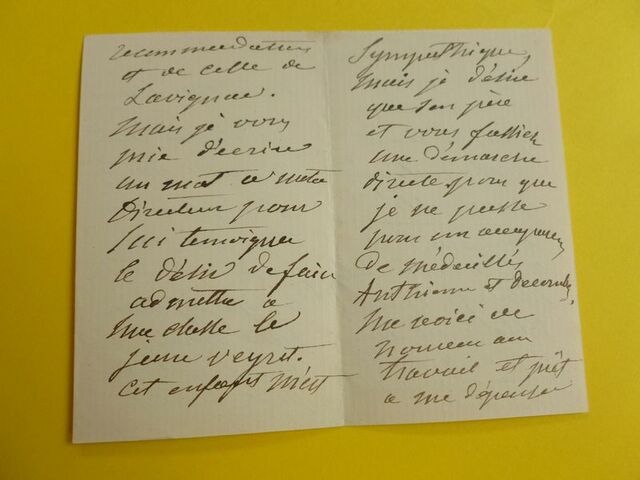 recommandation
et de celle de
Lavignac.
Mais je vous
prie d'écrire
un mot à notre
Directeur pour
lui témoigner
le désir de faire
admettre à
ma classe le
jeune Veyret.
Cet enfant m'est
sympathique,
Mais je désire
que son père
et vous fassiez
une démarche
directe pour que
je ne passe
pour un accapareur
de médaillés
Anthiome et
Me voici de
nouveau au
travail et prêt
à me dépenser